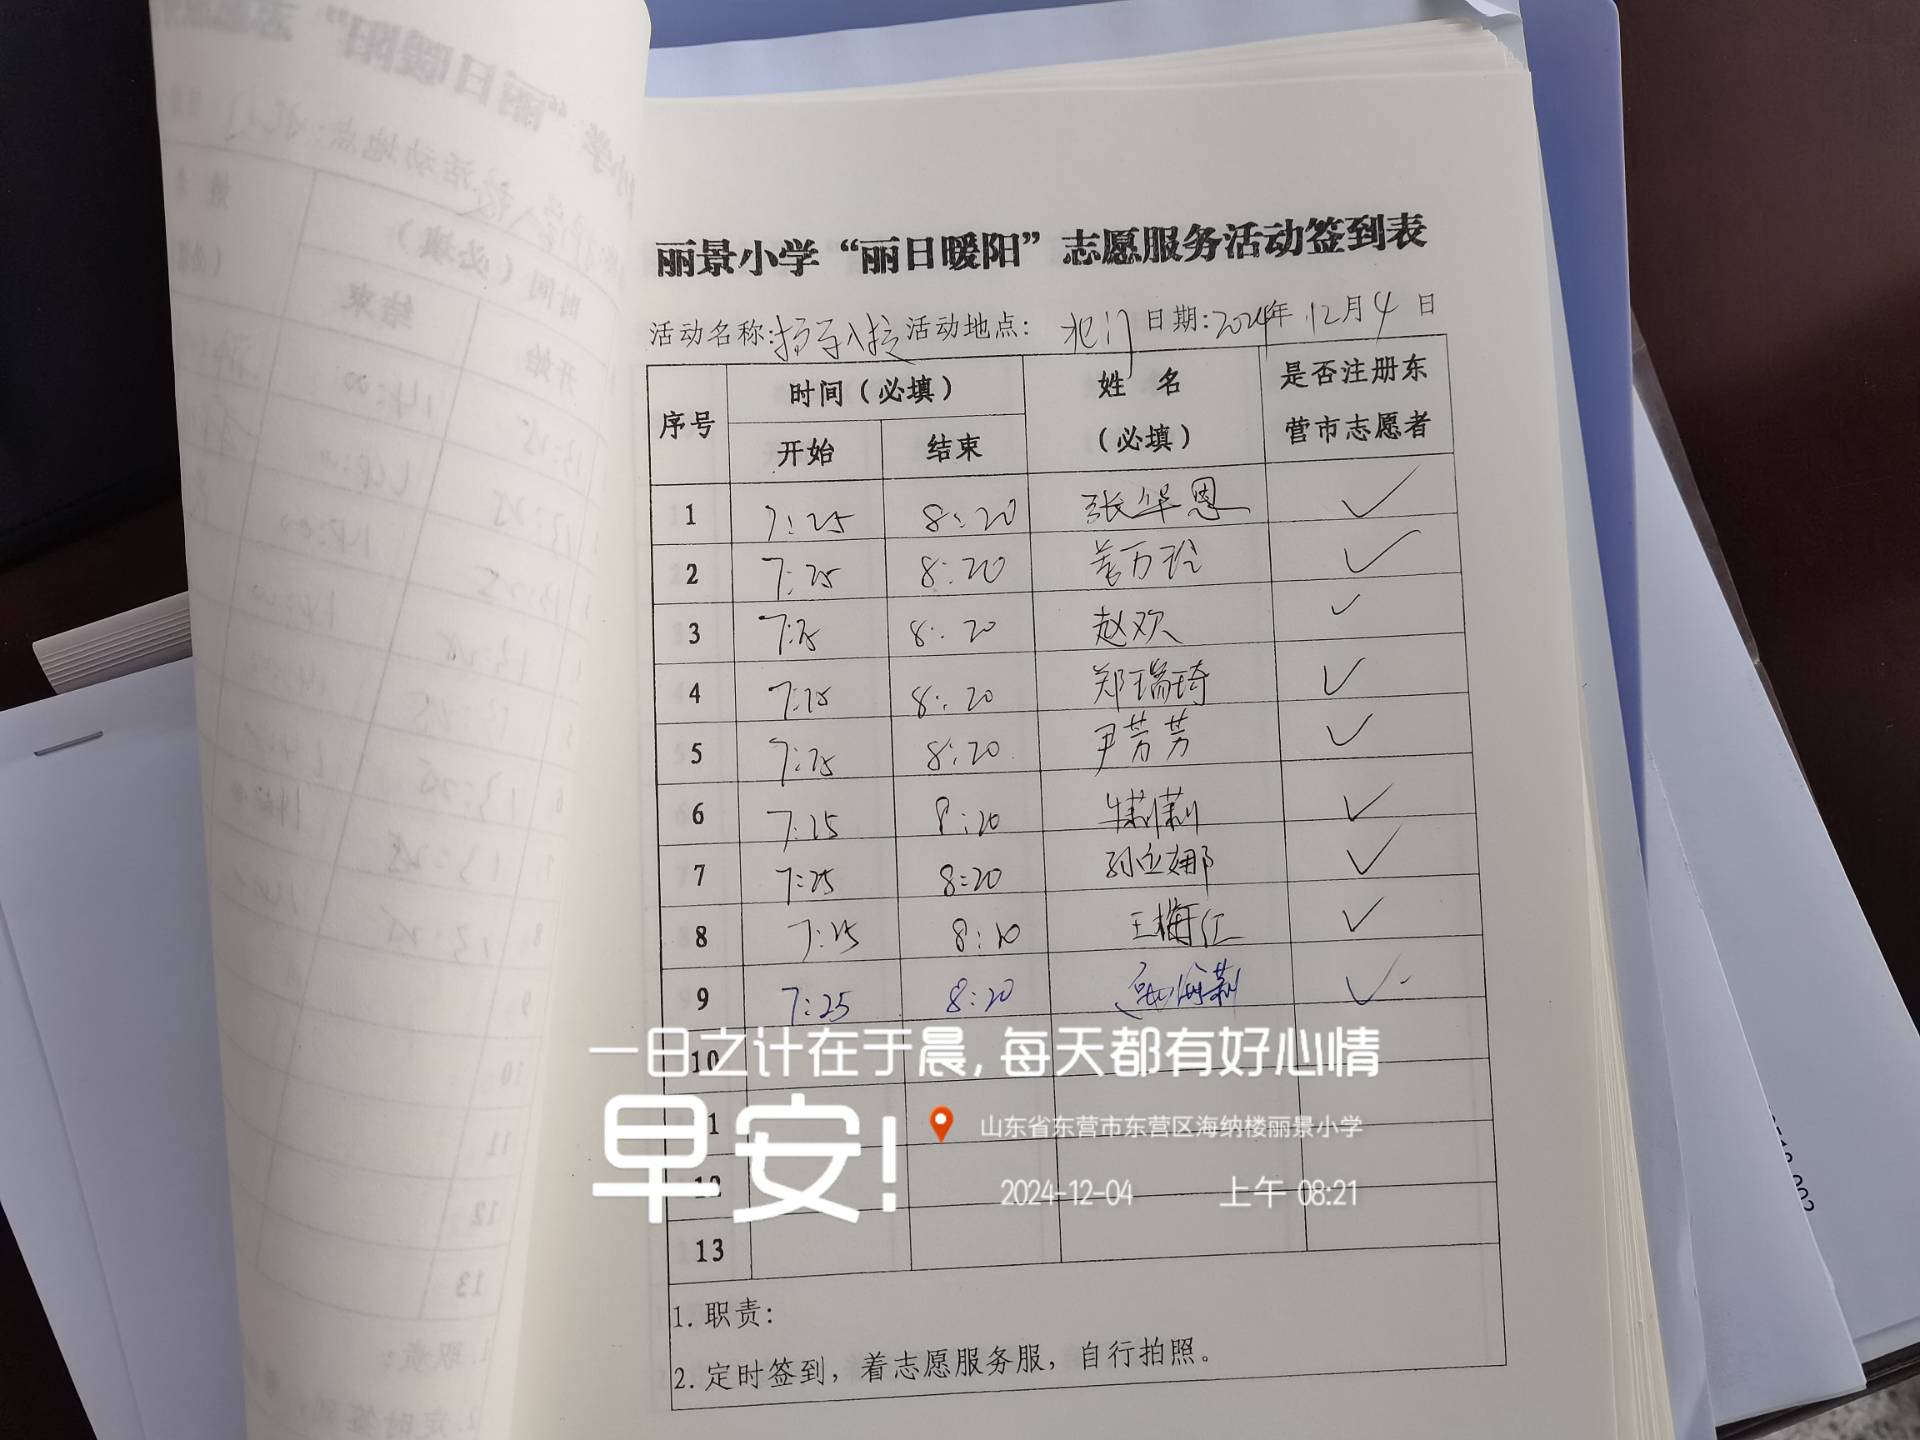 丽景小学“丽日暖阳”志愿服务活动签到表
活动名称: 活动地点: 北门 日期: 2024年 12月 4 日
序号 时间（必填） 姓 名（必填） 是否注册东营市志愿者
开始 结束
1 7:25 8:20 张华恩 ✓
2 7:25 8:20 ✓
3 7:25 8:20 赵欢 ✓
4 7:25 8:20 郑瑞琦 ✓
5 7:25 8:20 尹芳芳 ✓
6 7:25 8:20 ✓
7 7:25 8:20 孙立娜 ✓
8 7:25 8:20 ✓
9 7:25 8:20 ✓
10
11
12
13
1.职责：
2.定时签到，着志愿服务服，自行拍照。
一日之计在于晨,每天都有好心情
早安!
山东省东营市东营区海纳楼丽景小学
2024-12-04 上午 08:21